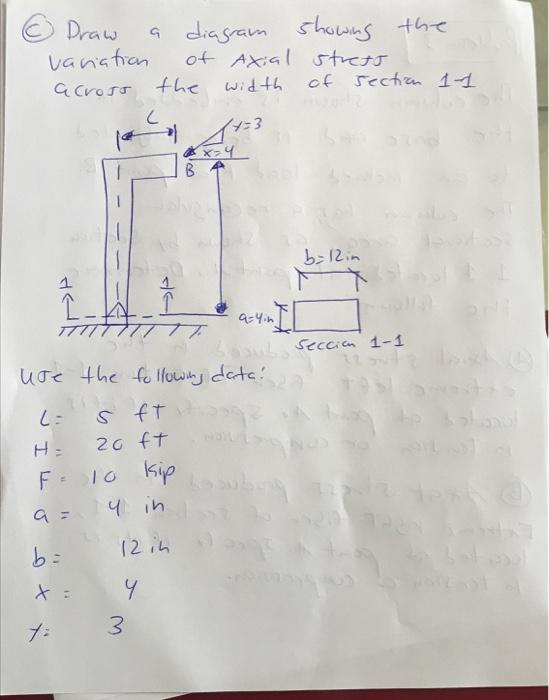 Ⓒ Draw a diagram showing the
variation of Axial stress
across the width of section 1-1
L
y=3
x=4
B
b=12in
1 1
a=4in
Seccion 1-1
Use the following data:
L= 5 fT
H= 20 fT
F= 10 Kip
a= 4 in
b= 12 in
x= 4
y= 3